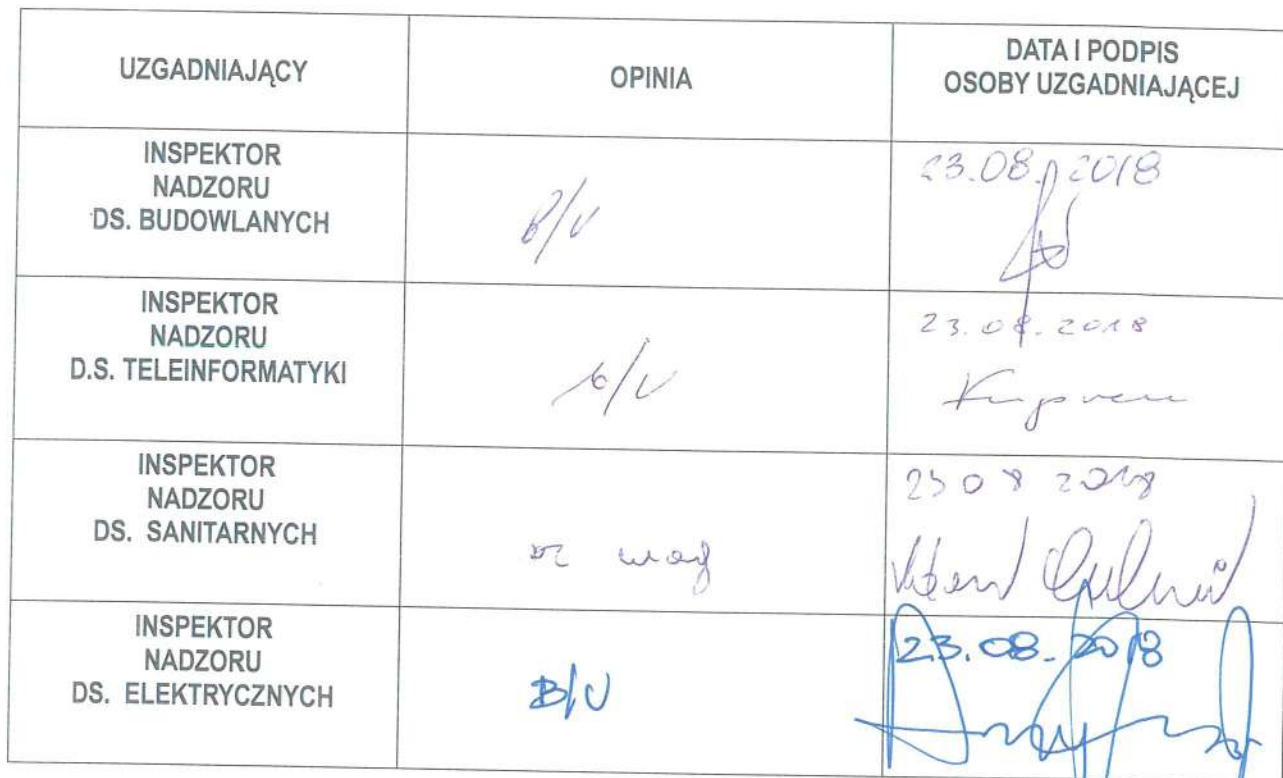 UZGADNIAJĄCY
OPINIA
DATA I PODPIS
OSOBY UZGADNIAJĄCEJ
INSPEKTOR
NADZORU
DS. BUDOWLANYCH
B/U
23.08.2018
INSPEKTOR
NADZORU
D.S. TELEINFORMATYKI
b/U
23.08.2018
INSPEKTOR
NADZORU
DS. SANITARNYCH
uwag
23 08 2018
INSPEKTOR
NADZORU
DS. ELEKTRYCZNYCH
B/U
23.08.2018